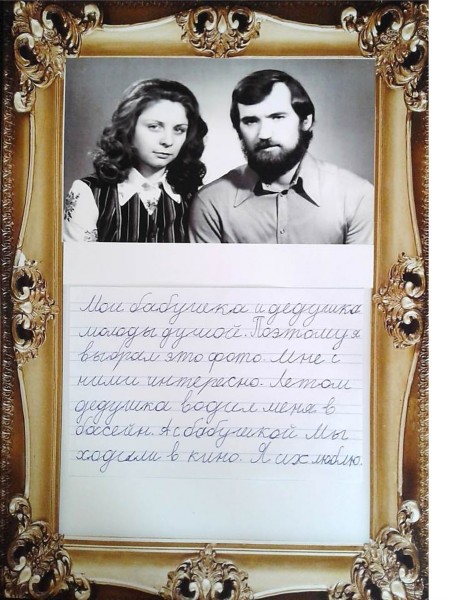 Мои бабушка и дедушка
молоды душой. Поэтому я
выбрал это фото. Мне с
ними интересно. Летом
дедушка водил меня в
басейн. А с бабушкой мы
ходили в кино. Я их люблю.